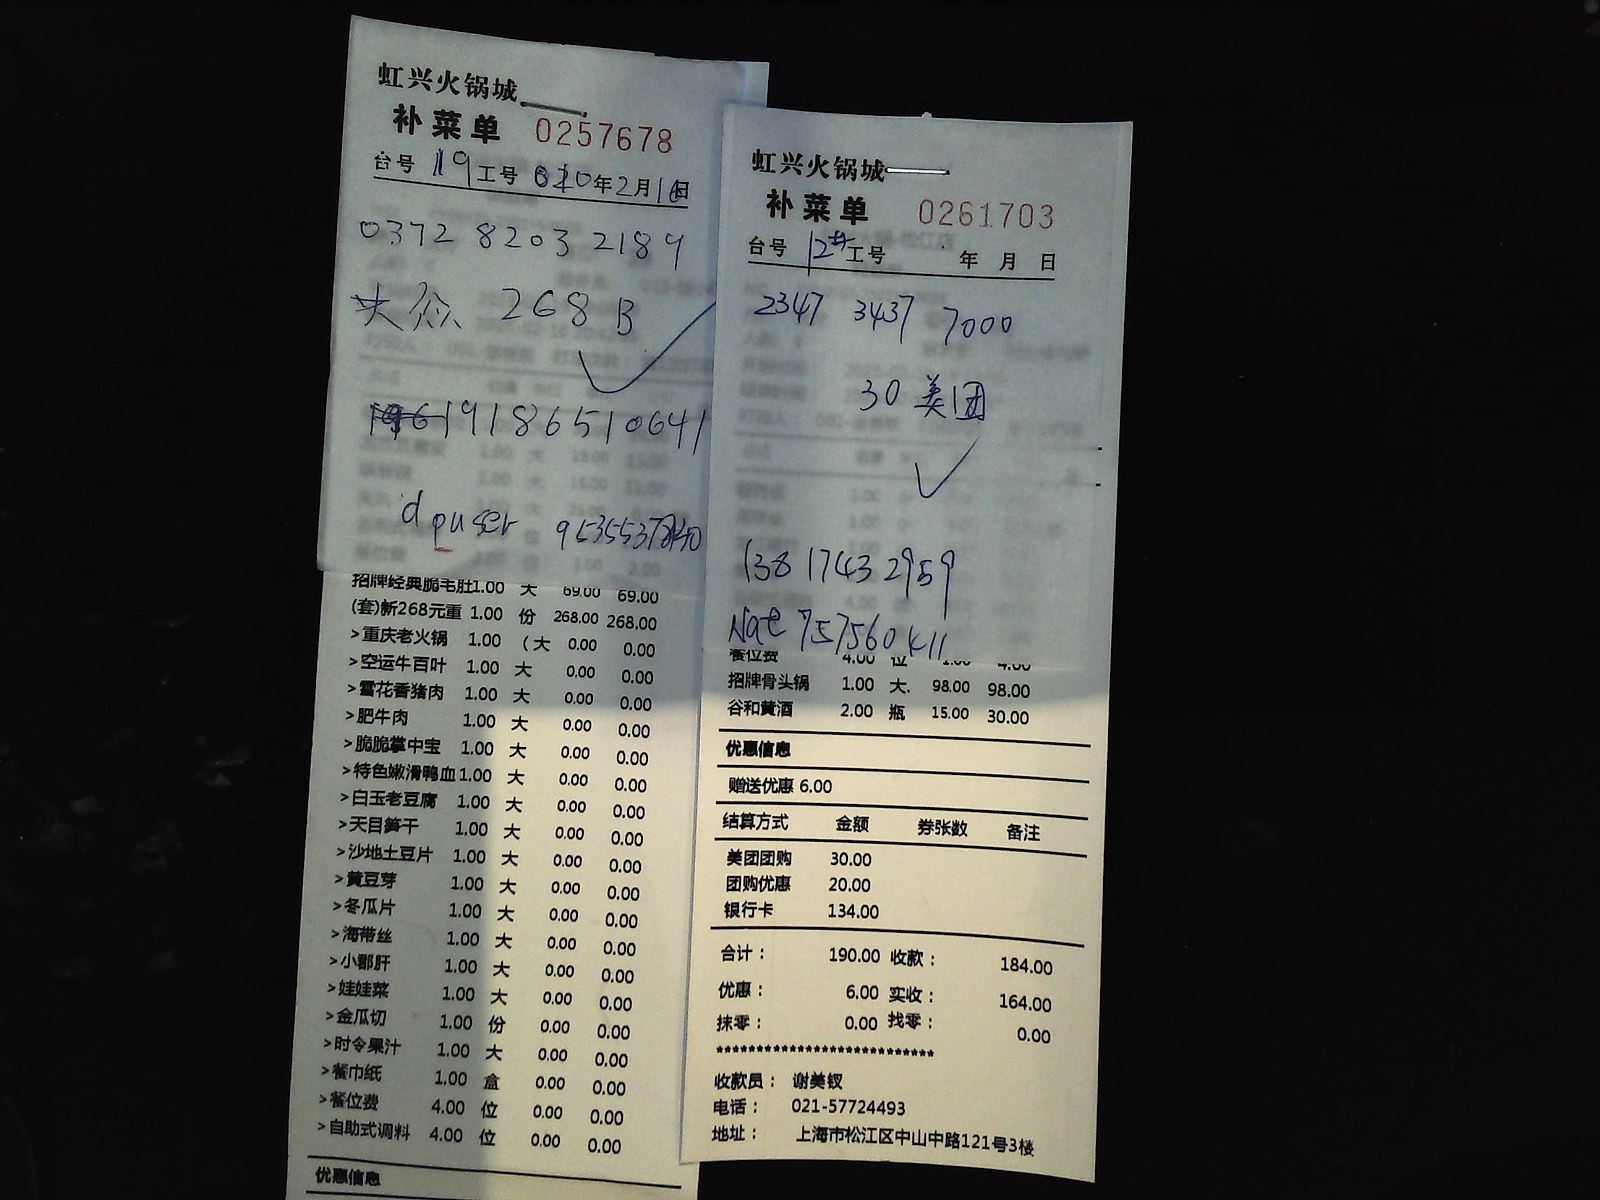 虹兴火锅城
补菜单 0257678
台号 119 工号 年2月1日
0372 8203 2189
大众 268 B
19186510641
dpuser
招牌经典脆毛肚 1.00 大 69.00 69.00
(套)新268元重 1.00 份 268.00 268.00
>重庆老火锅 1.00 (大 0.00 0.00
>空运牛百叶 1.00 大 0.00 0.00
>雪花香猪肉 1.00 大 0.00 0.00
>肥牛肉 1.00 大 0.00 0.00
>脆脆掌中宝 1.00 大 0.00 0.00
>特色嫩滑鸭血 1.00 大 0.00 0.00
>白玉老豆腐 1.00 大 0.00 0.00
>天目笋干 1.00 大 0.00 0.00
>沙地土豆片 1.00 大 0.00 0.00
>黄豆芽 1.00 大 0.00 0.00
>冬瓜片 1.00 大 0.00 0.00
>海带丝 1.00 大 0.00 0.00
>小郡肝 1.00 大 0.00 0.00
>娃娃菜 1.00 大 0.00 0.00
>金瓜切 1.00 份 0.00 0.00
>时令果汁 1.00 大 0.00 0.00
>餐巾纸 1.00 盒 0.00 0.00
>餐位费 4.00 位 0.00 0.00
>自助式调料 4.00 位 0.00 0.00
优惠信息
虹兴火锅城
补菜单 0261703
台号 12# 工号 年 月 日
2347 3437 7000
30 美团
138 1743 2959
餐位费 4.00 位 1.00 4.00
招牌骨头锅 1.00 大. 98.00 98.00
谷和黄酒 2.00 瓶 15.00 30.00
优惠信息
赠送优惠 6.00
结算方式 金额 券张数 备注
美团团购 30.00
团购优惠 20.00
银行卡 134.00
合计： 190.00 收款： 184.00
优惠： 6.00 实收： 164.00
抹零： 0.00 找零： 0.00
***************************
收款员： 谢美钗
电话： 021-57724493
地址： 上海市松江区中山中路121号3楼